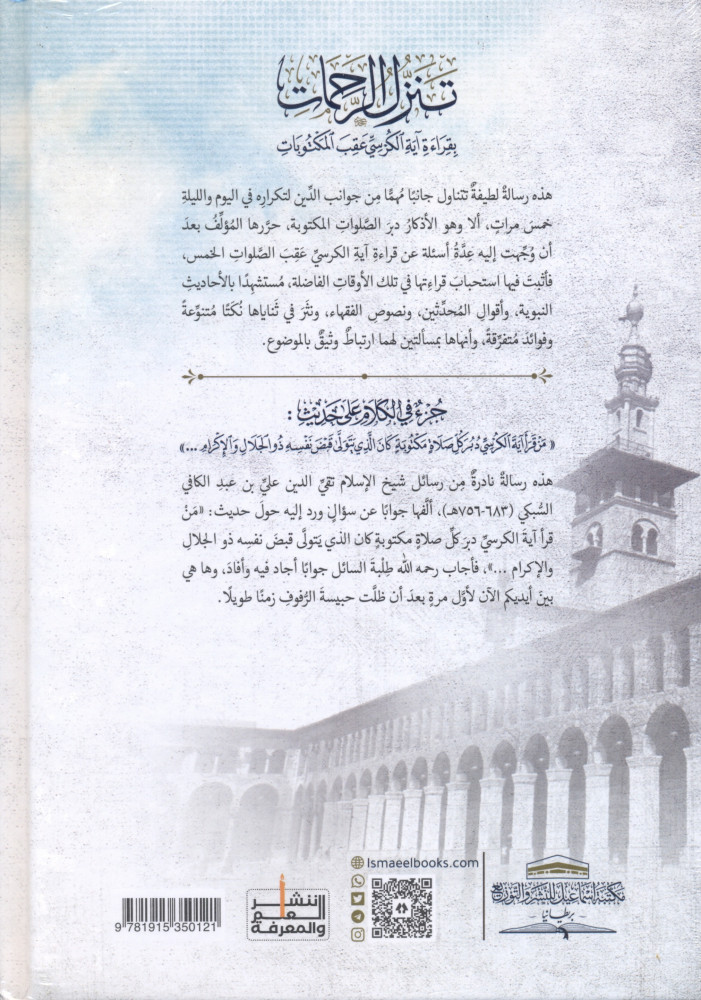 تَنَزُّلُ الرَّحَمَاتِ
بِقِرَاءَةِ آيَةِ الكُرْسِيِّ عَقِبَ المَكْتُوبَاتِ
هذه رسالةٌ لطيفةٌ تتناول جانبًا مُهمًّا مِن جوانب الدِّين لتكراره في اليوم والليلةِ
خمسَ مراتٍ، ألا وهو الأذكارُ دبرَ الصَّلواتِ المكتوبة، حرَّرها المُؤلِّفُ بعدَ
أن وُجِّهت إليه عِدَّةُ أسئلة عن قراءةِ آيةِ الكرسيِّ عَقِبَ الصَّلواتِ الخمس،
فأثبتَ فيها استحبابَ قراءتِها في تلك الأوقاتِ الفاضلة، مُستشهِدًا بالأحاديثِ
النبوية، وأقوالِ المُحدِّثين، ونصوصِ الفقهاء، ونثَرَ في ثناياها نُكَتًا مُتنوِّعةً
وفوائدَ مُتفرِّقةً، وأنهاها بمسألتين لهما ارتباطٌ وثيقٌ بالموضوع.
جُزْءٌ فِي الكَلَامِ عَلَى حَدِيْثِ :
« مَنْ قَرَأَ آيَةَ الكُرْسِيِّ دُبُرَ كُلِّ صَلَاةٍ مَكْتُوبَةٍ كَانَ الَّذِي يَتَوَلَّى قَبْضَ نَفْسِهِ ذُو الجَلَالِ وَالإِكْرَامِ ... »
هذه رسالةٌ نادرةٌ مِن رسائل شيخِ الإسلام تقيِّ الدين عليِّ بن عبدِ الكافي
السُّبكي (٦٨٣-٧٥٦هـ)، ألَّفها جوابًا عن سؤالٍ ورد إليه حولَ حديث: «مَنْ
قرأ آيةَ الكرسيِّ دبرَ كلِّ صلاةٍ مكتوبةٍ كان الذي يَتولَّى قبضَ نفسِه ذو الجلالِ
والإكرام ...»، فأجاب رحمه الله طِلْبةَ السائل جوابًا أجاد فيه وأفادَ، وها هي
بينَ أيديكم الآن لأوَّلِ مرةٍ بعدَ أن ظلَّت حبيسةَ الرُّفوفِ زمنًا طويلًا.
Ismaeelbooks.com
مكتبة إسماعيل للنشر والتوزيع
- بريطانيا -
لننشر
العلم
والمعرفة
9 781915 350121